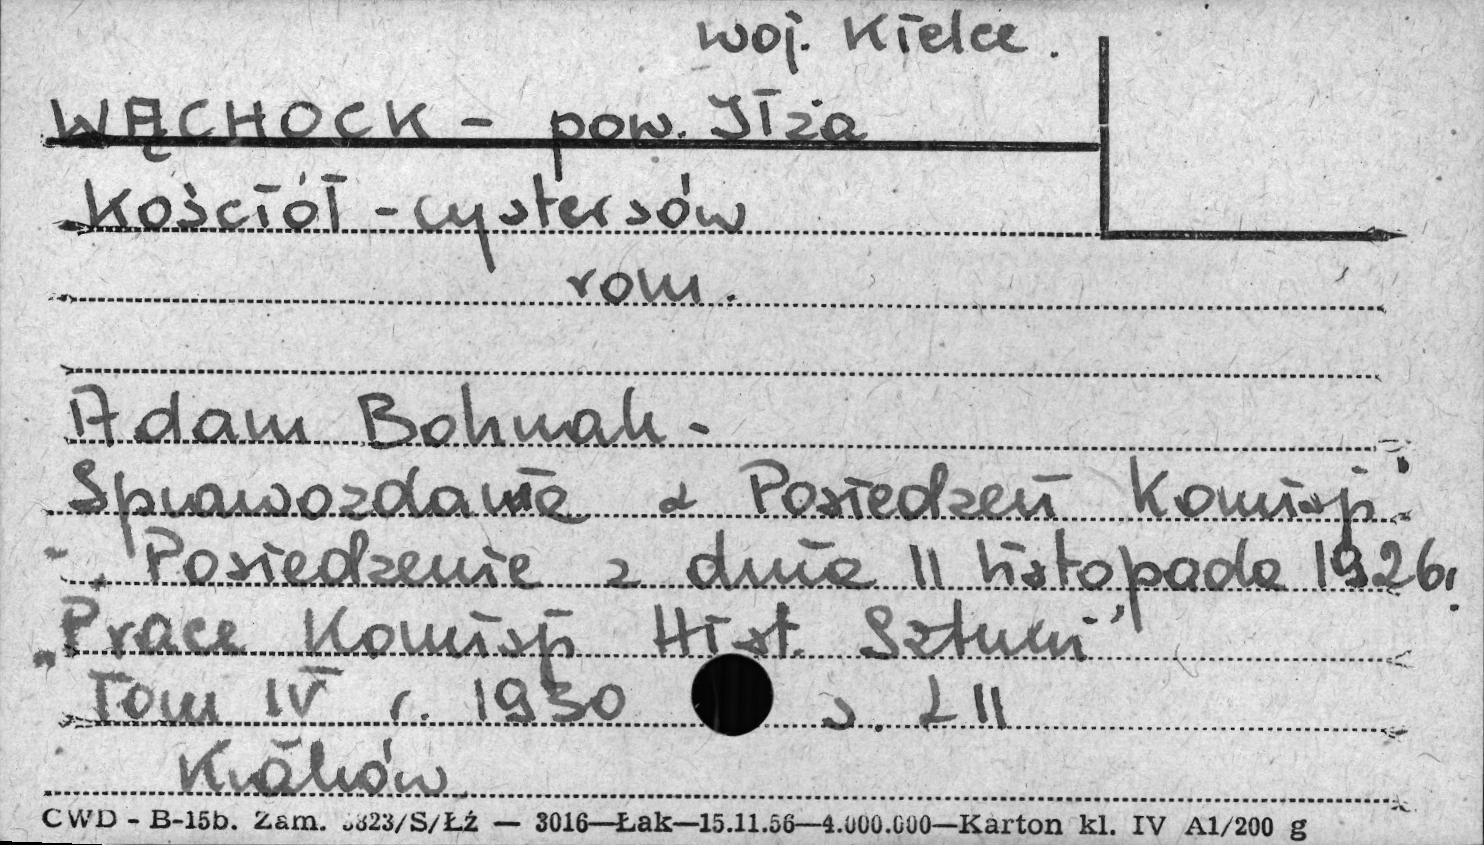 woj. Kielce.
WĄCHOCK - pow. Iłża
Kościół - cystersów
rom.
Adam Bohnak -
Sprawozdanie z Posiedzeń Komisji
- „Posiedzenie z dnia 11 listopada 1926r.
„Prace Komisji Hist. Sztuki"
Tom IV r. 1930 s. LII
Kraków
CWD - B-15b. Zam. 3823/S/Łź — 3016—Łak—15.11.56—4.000.000—Karton kl. IV A1/200 g